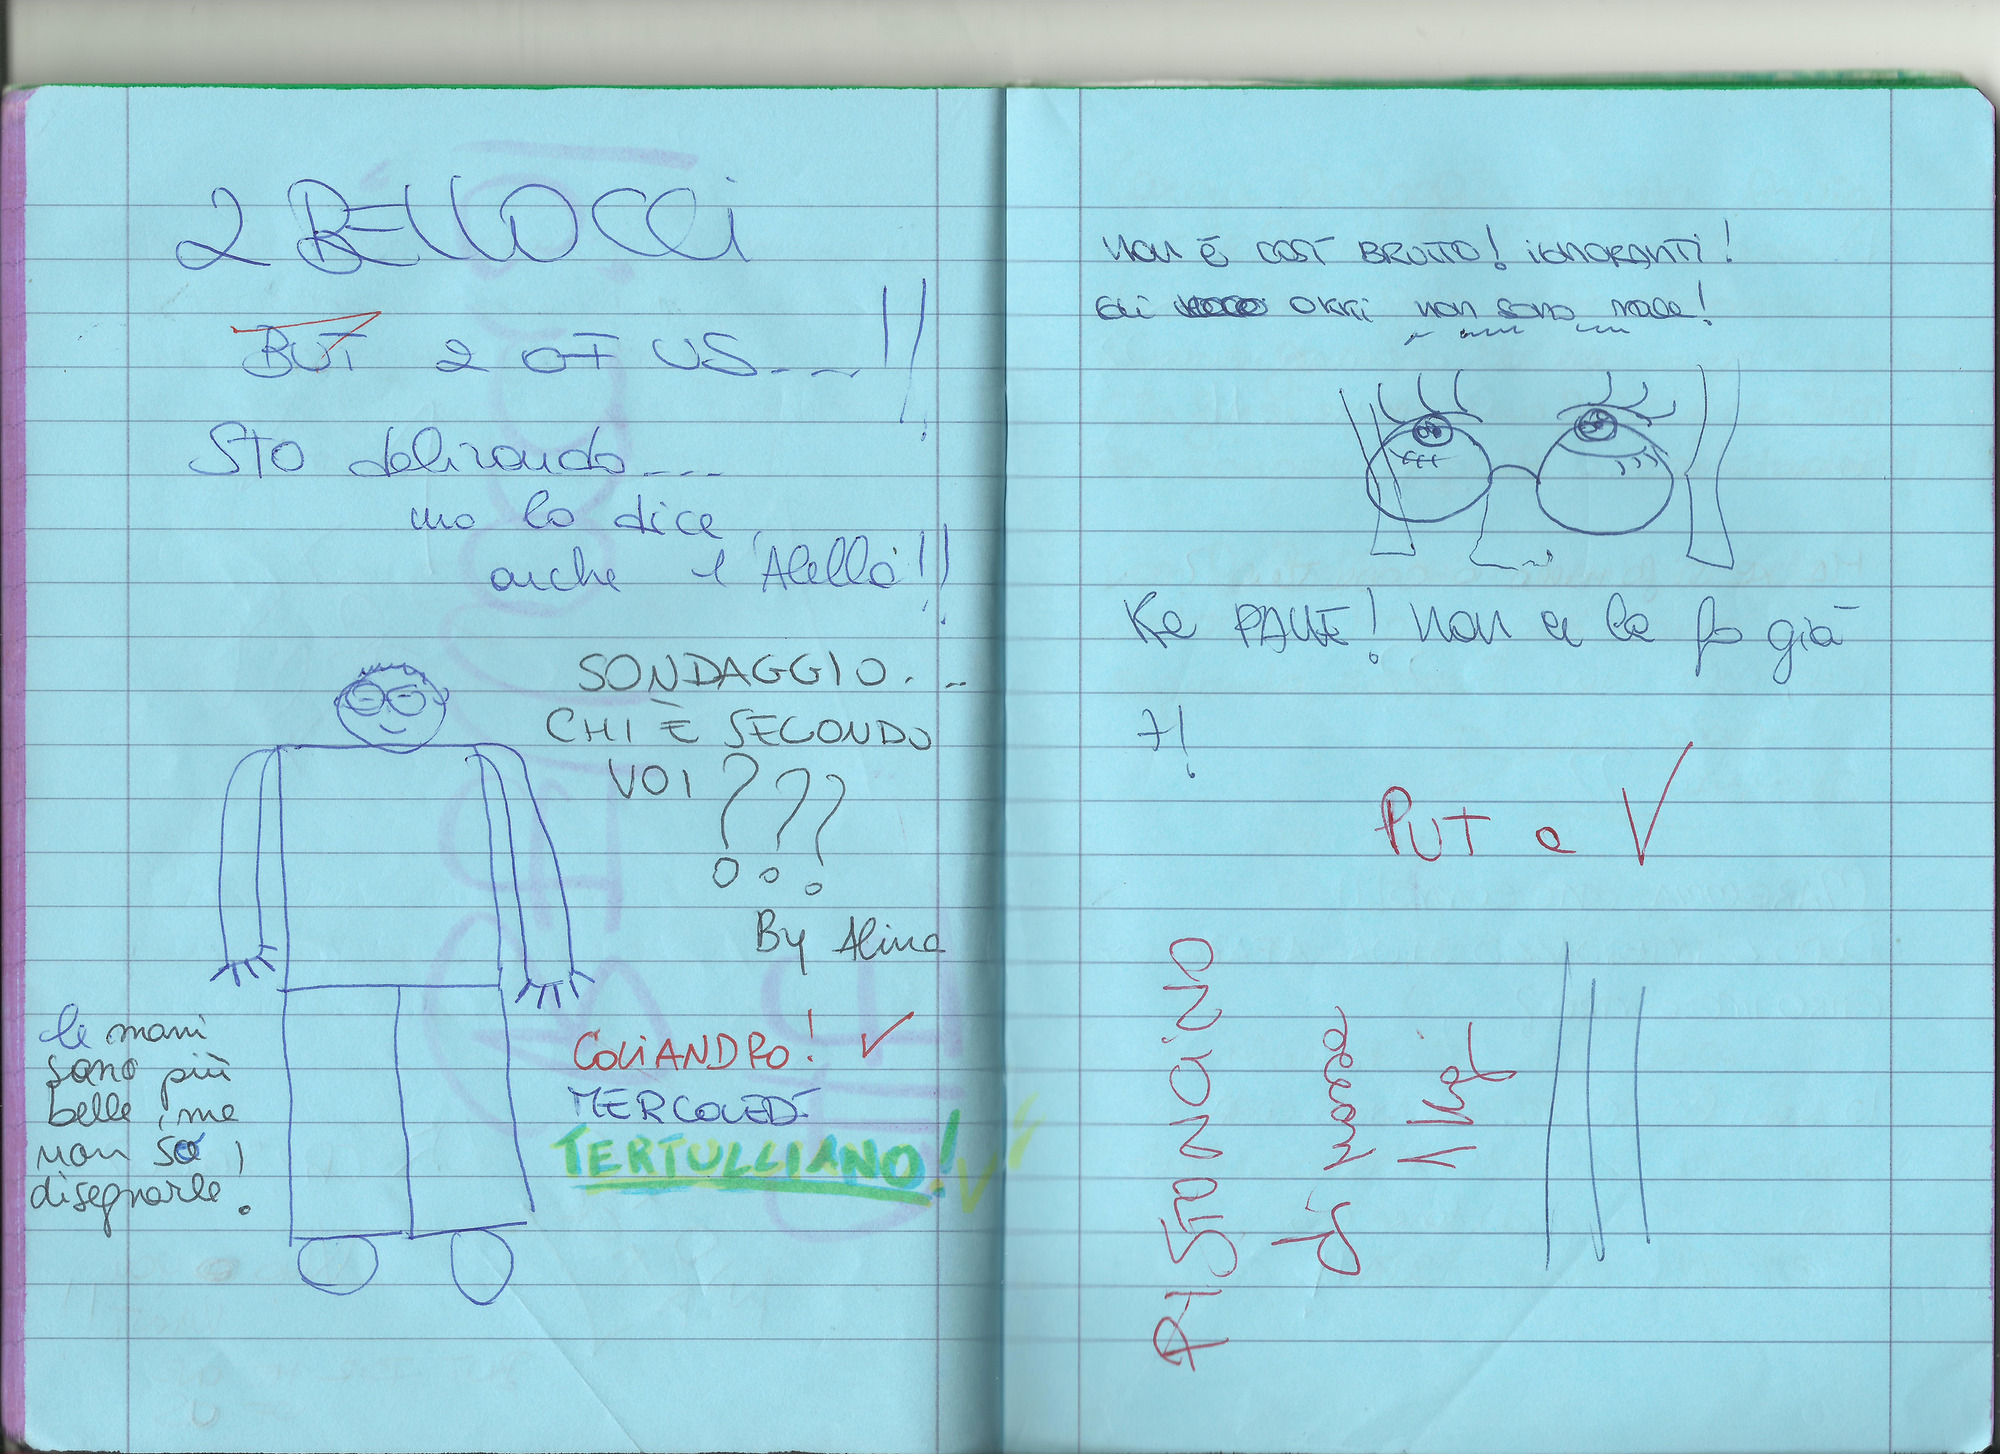 2 BELLOCCI
BUT 2 OF US...!!
STO delirando....
ma lo dice
anche l'Alella!!
SONDAGGIO...
CHI È SECONDO
VOI ???
By Alina
le mani
sono più
belle, ma
non so
disegnarle!
COLIANDRO! ✓
MERCOLEDÌ
TERTULLIANO! ✓
NON È COSÌ BRUTTO! IGNORANTI!
Gli OKKI non sono male!
Ke PALLE! Non ce la fo già
+!
PUT a ✓
PISTONCINO
di